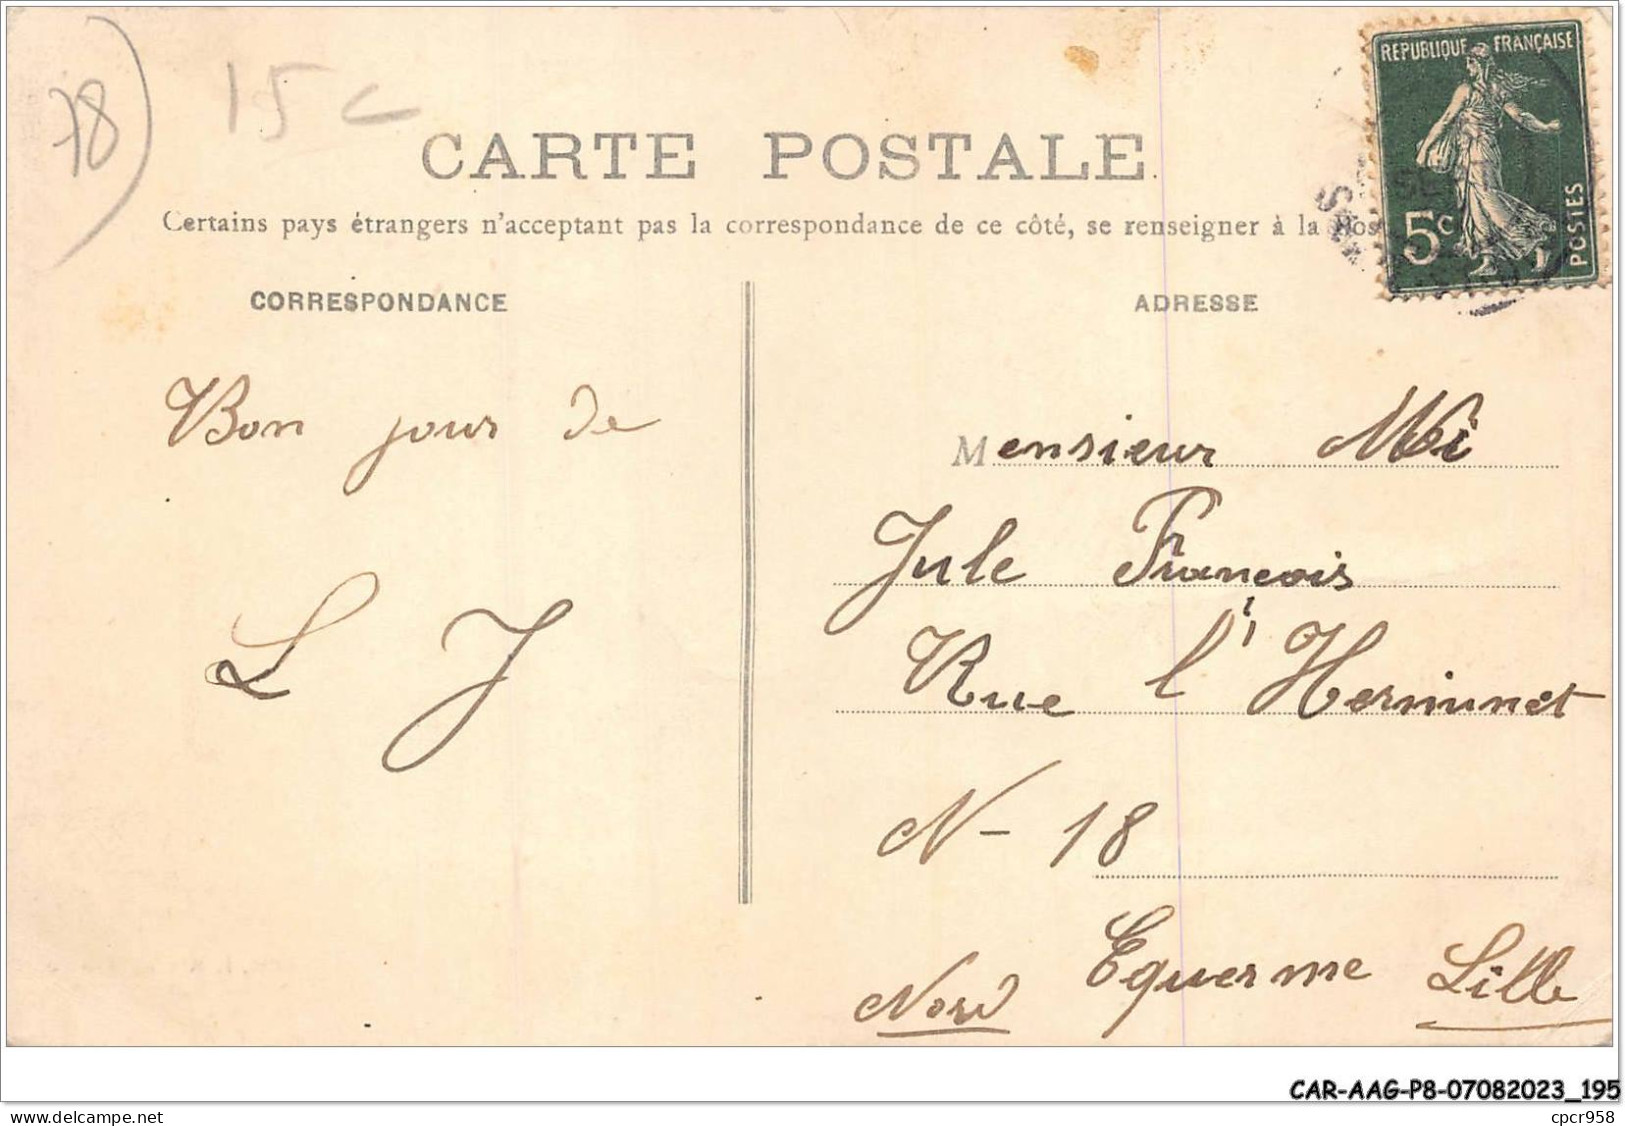 78)
15 c
REPUBLIQUE FRANÇAISE
5c
POSTES
CARTE POSTALE
Certains pays étrangers n'acceptant pas la correspondance de ce côté, se renseigner à la Pos
CORRESPONDANCE
ADRESSE
Bon jour de
L J
Mensieur
Jule Francois
Rue l'Herminet
N- 18
Equerme Lille
Nord
CAR-AAG-P8-07082023_195
www.delcampe.net
cpcr958